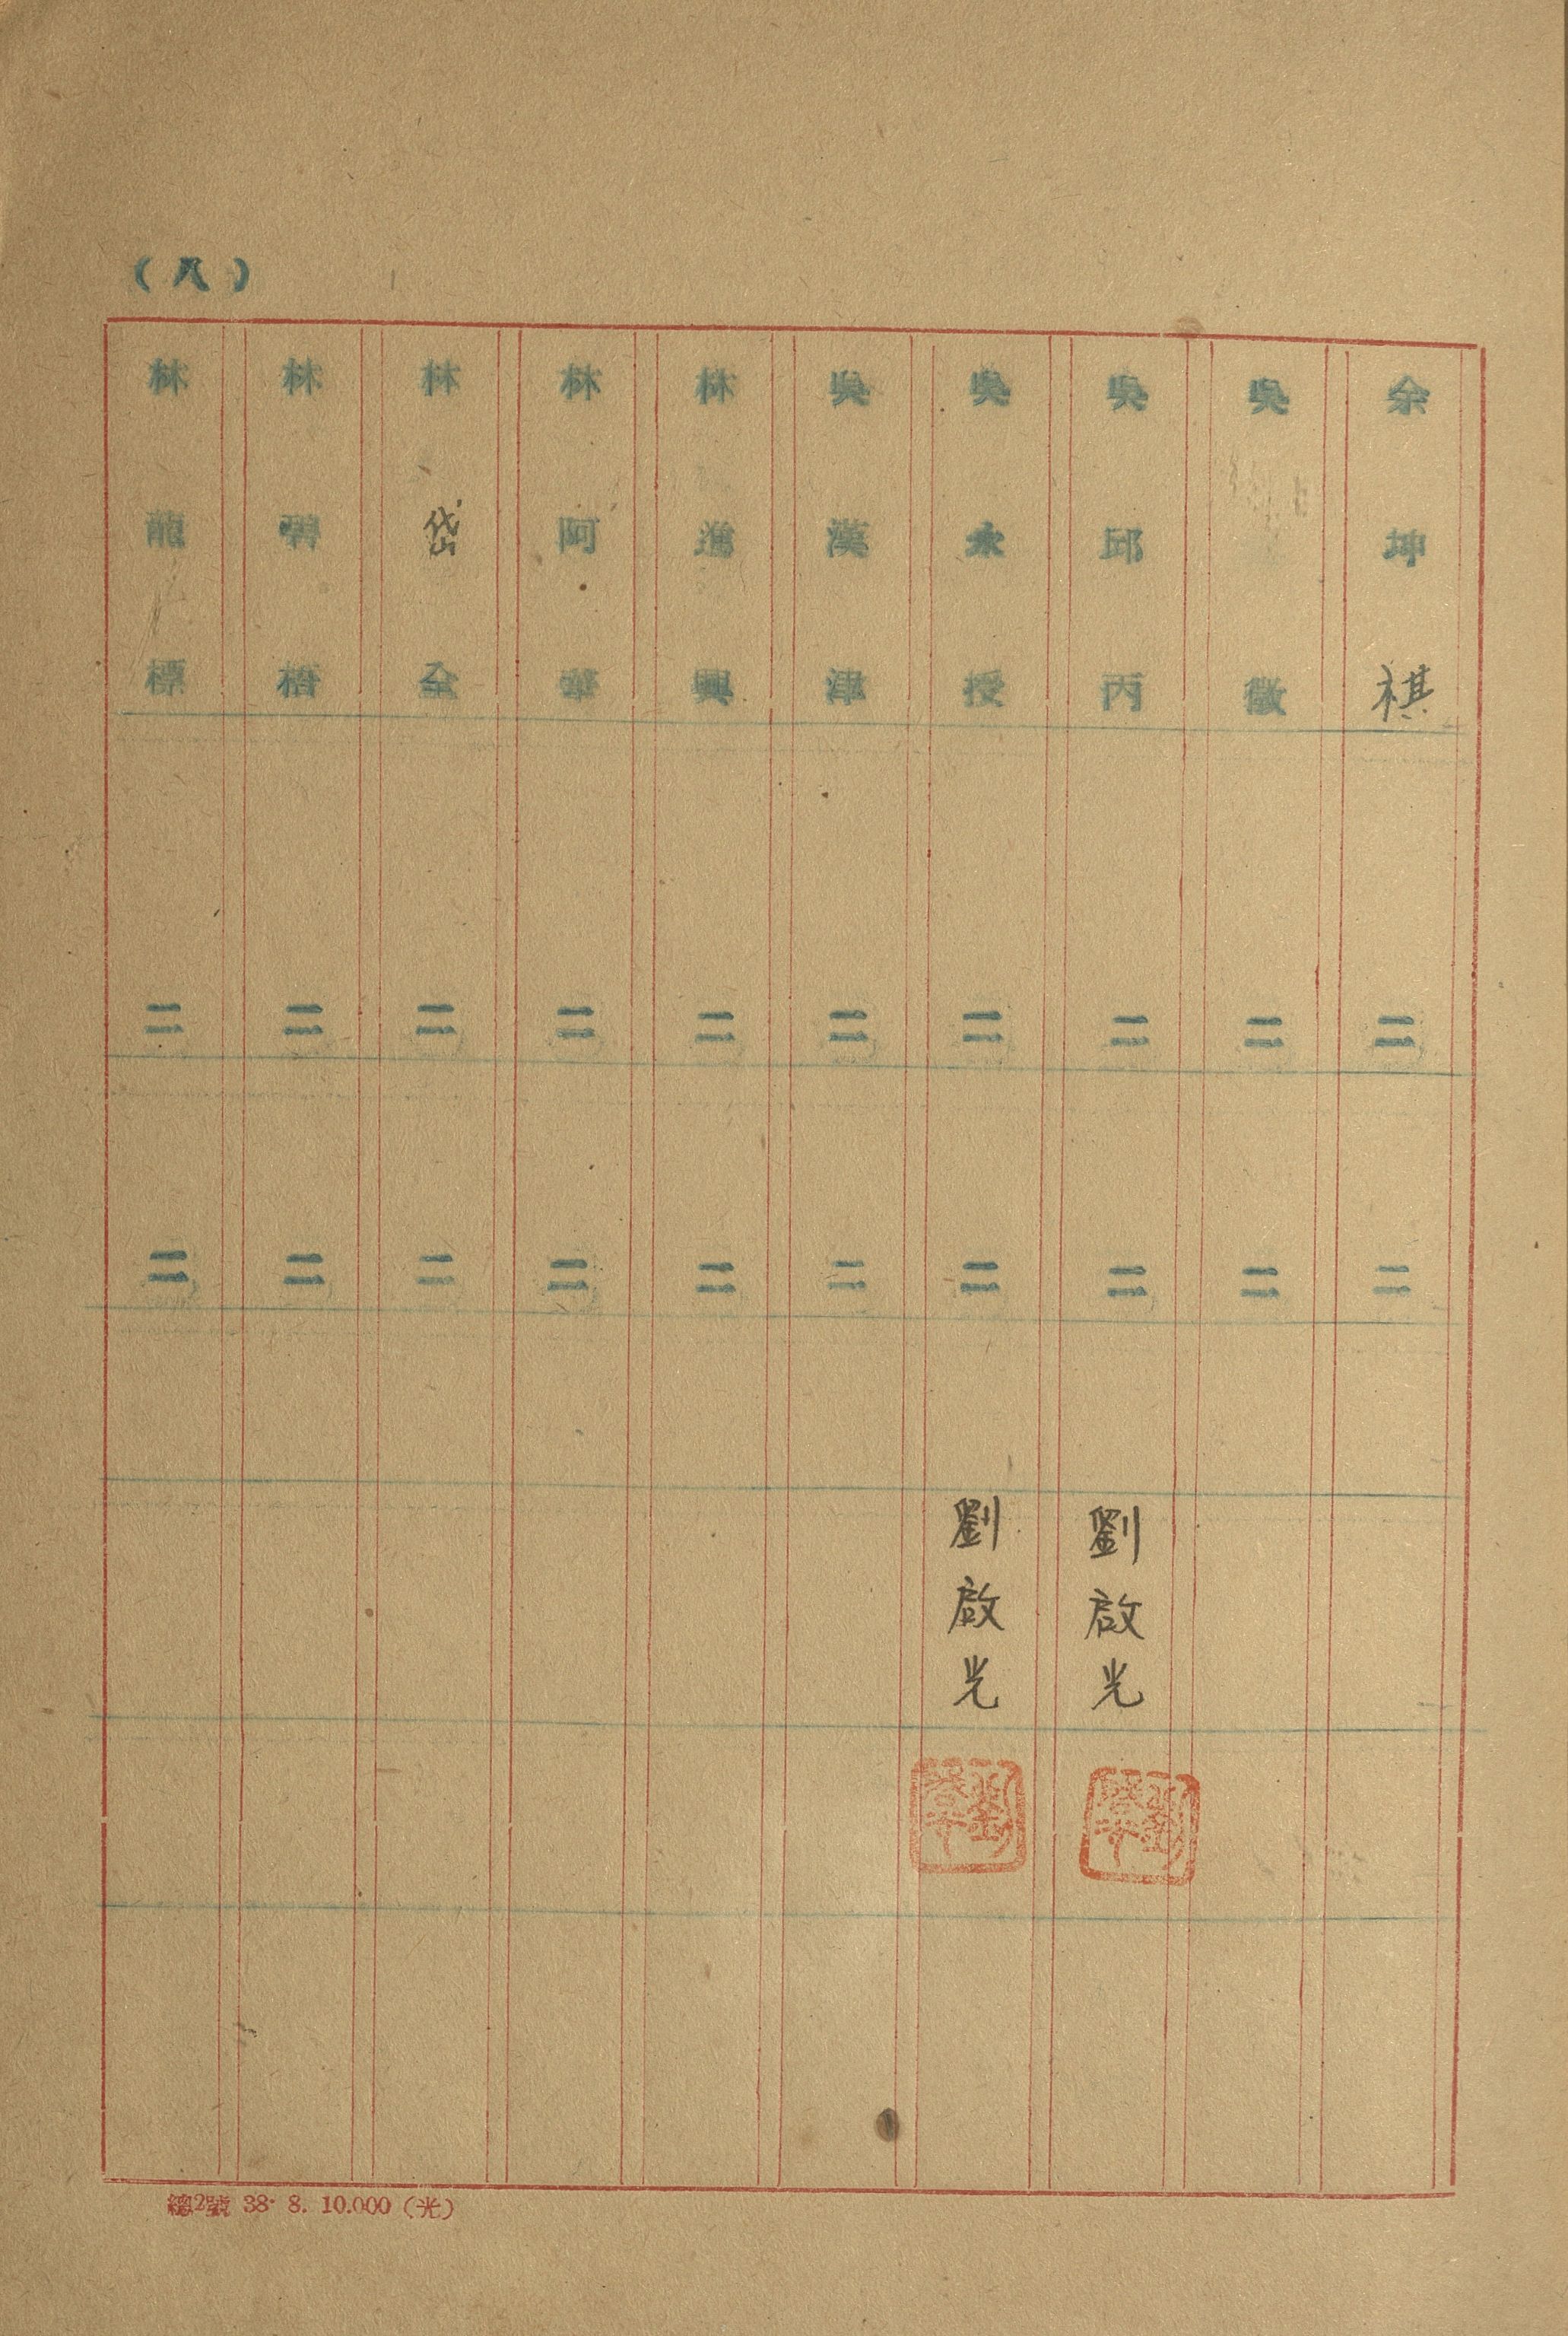 （八）
余坤祺 二 二
吳徵 二 二
吳邱丙 二 二 劉啟光
吳永授 二 二 劉啟光
吳漢津 二 二
林進興 二 二
林阿華 二 二
林岱全 二 二
林碧梧 二 二
林龍標 二 二
總2號 38· 8. 10.000（光）